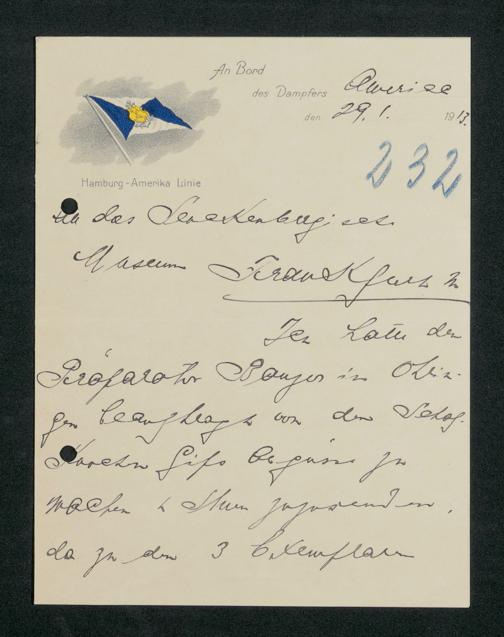 An Bord
des Dampfers America
den 29.1. 1913.
232
Hamburg-Amerika Linie
An das Senckenbergische
Museum Frankfurt M
Ich hatte den
Präparator Banzer in Öhrin-
gen beauftragt von den
Knochen Gips Abgüsse zu
machen & Ihnen zuzusenden,
da zu den 3 Exemplaren